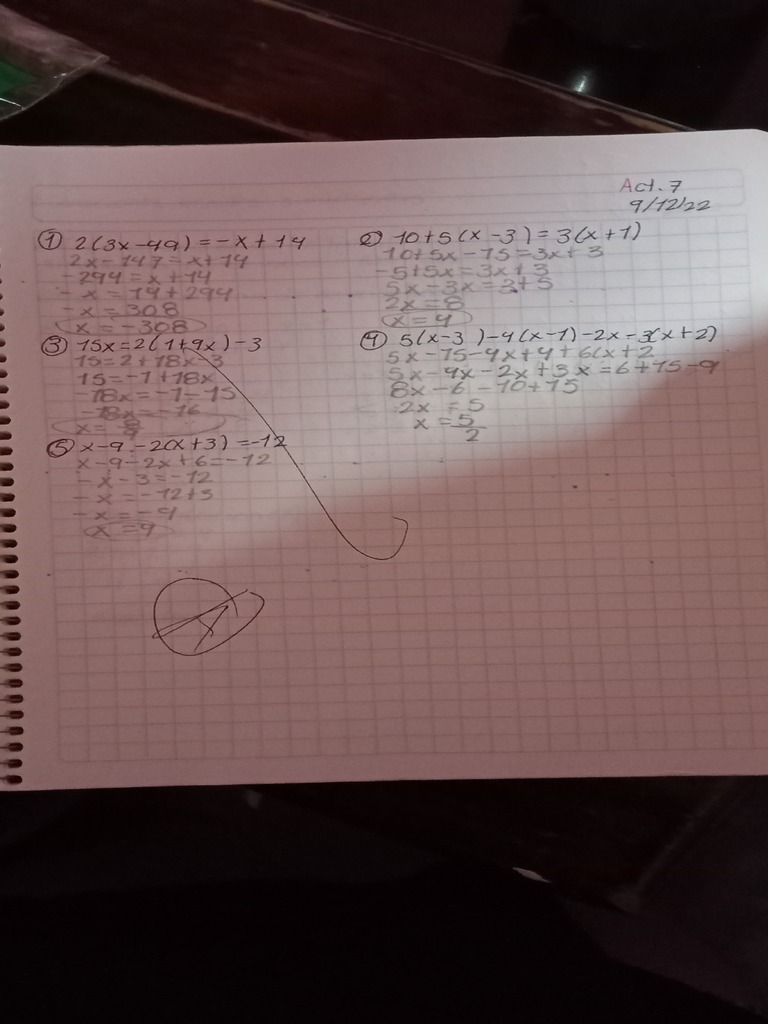 Act. 7
9/12/22
① 2(3x-49) = -x + 14
2x - 147 = x + 14
-294 = x + 14
- x = 14 + 294
- x = 308
x = -308
② 10+5(x-3) = 3(x+1)
10+5x - 15 = 3x + 3
-5+5x = 3x + 3
5x - 3x = 3+5
2x = 8
x = 4
③ 15x = 2(1+9x) - 3
15 = 2 + 18x - 3
15 = -1 + 18x
-18x = -1 - 15
-18x = -16
x = 8/9
④ 5(x-3) - 4(x-1) - 2x - 3(x+2)
5x - 15 - 4x + 4 + 6(x + 2
5x - 4x - 2x + 3x = 6 + 15 - 9
8x - 6 - 10 + 15
2x = 5
x = 5/2
⑤ x - 9 - 2(x+3) = -12
x - 9 - 2x + 6 = -12
- x - 3 = -12
- x = -12 + 3
- x = -9
x = 9